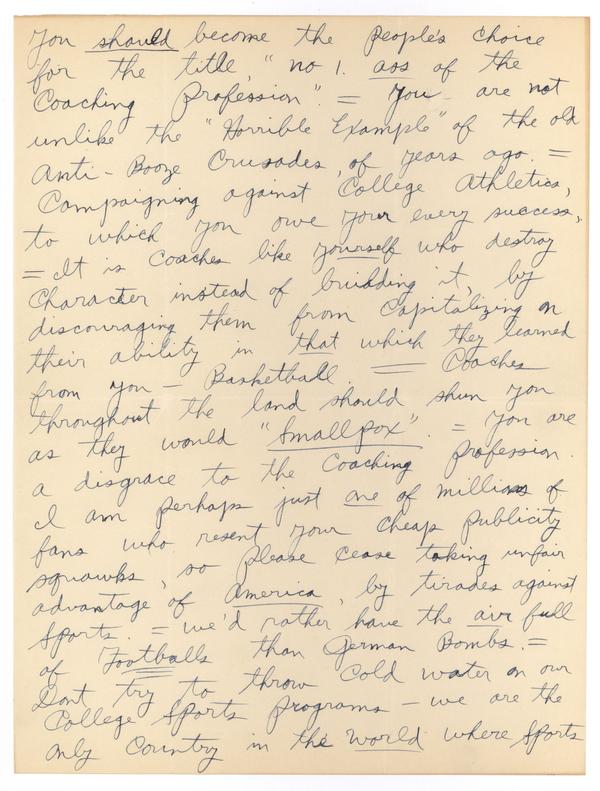 You should become the people's choice
for the title, "no 1. ass of the
Coaching Profession". = You are not
unlike the "Horrible Example" of the old
Anti-Booze Crusades, of years ago. =
Campaigning against College Athletics,
to which you owe your every success,
= It is Coaches like yourself who destroy
Character instead of building it, by
discouraging them from Capitalizing on
their ability in that which they learned
from you - Basketball. = Coaches
throughout the land should shun you
as they would "Smallpox". = You are
a disgrace to the Coaching profession.
I am perhaps just one of millions of
fans who resent your cheap publicity
squawks, so please cease taking unfair
advantage of America, by tirades against
Sports. = We'd rather have the air full
of Footballs than German Bombs. =
Dont try to throw Cold water on our
College Sports programs - we are the
only Country in the World where Sports